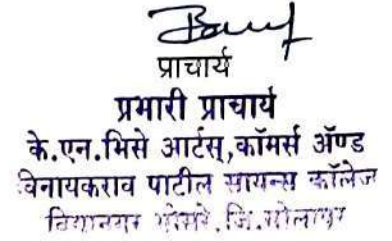 प्राचार्य
प्रभारी प्राचार्य
के.एन.भिसे आर्टस्,कॉमर्स ॲण्ड
विनायकराव पाटील सायन्स कॉलेज
विद्यानगर भोसरे.जि.सोलापूर